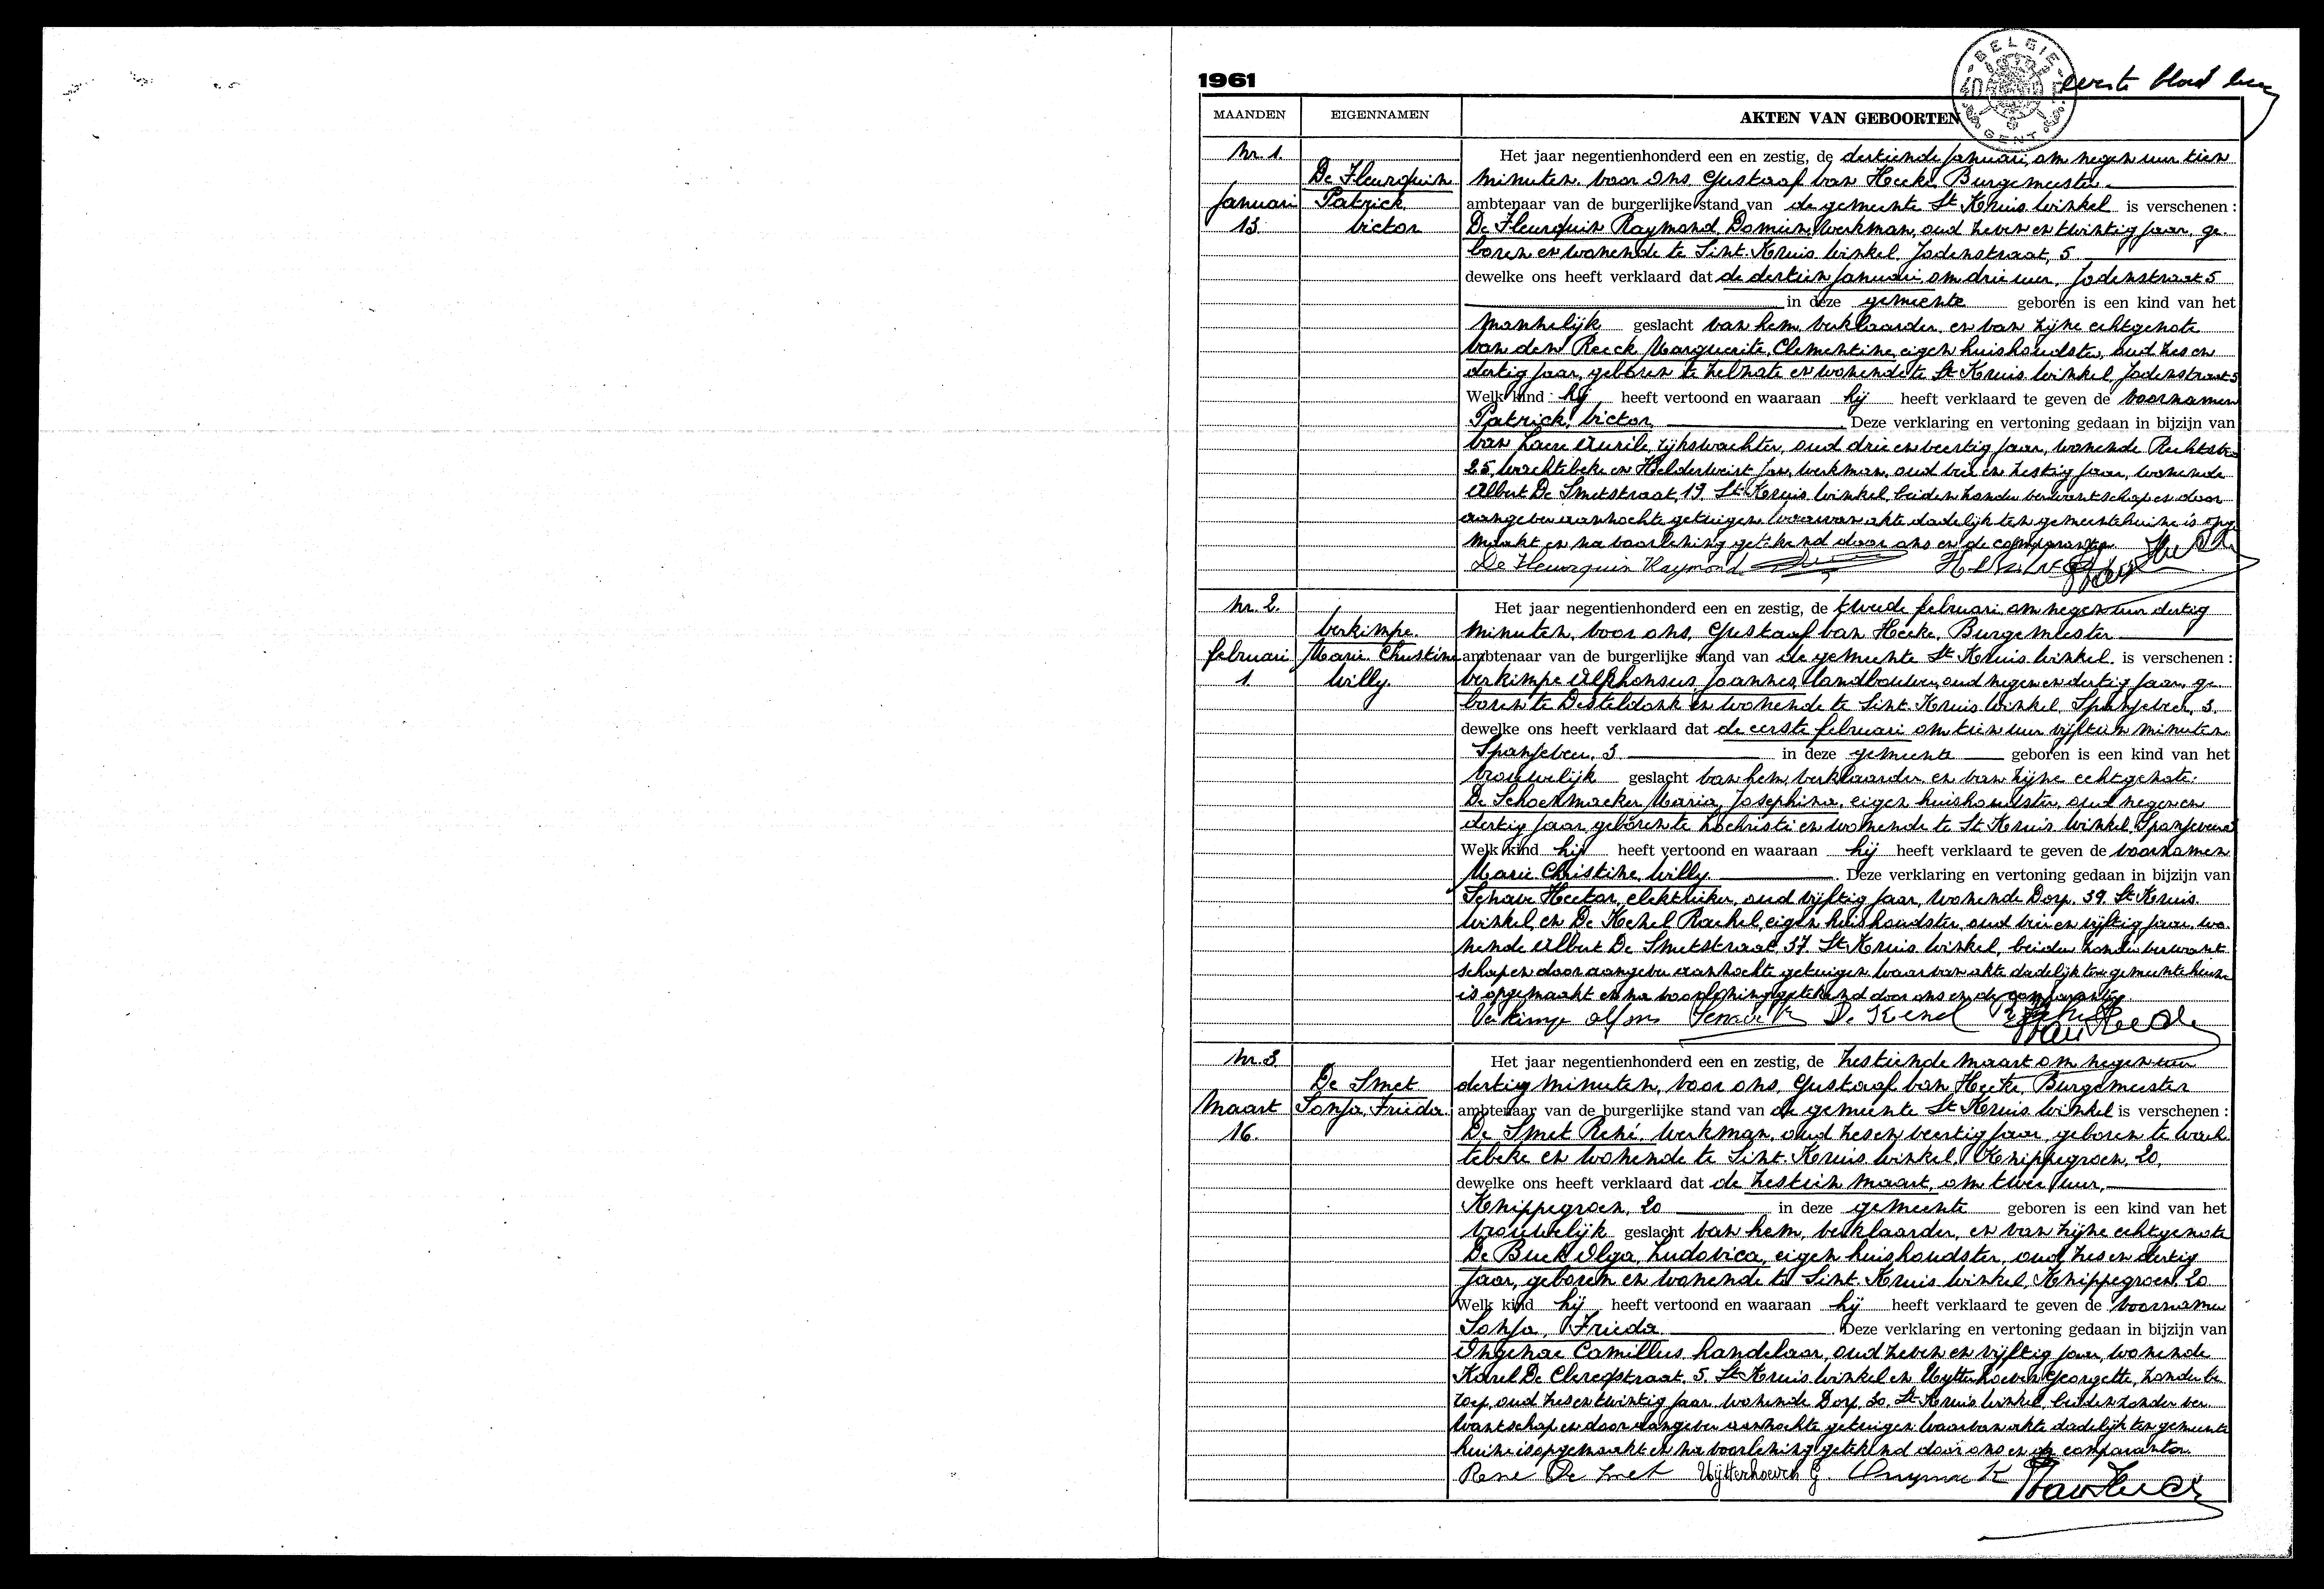 1961
BELGIE
40
GENT
eerste blad
MAANDEN EIGENNAMEN AKTEN VAN GEBOORTEN
Nr. 1.
De Fleurquin
Januari Patrick
13. Victor
Het jaar negentienhonderd een en zestig, de dertiende januari, om negen uur tien
minuten, voor ons, Gustaaf Van Hecke, Burgemeester
ambtenaar van de burgerlijke stand van de gemeente St Kruis Winkel is verschenen :
De Fleurquin Raymond, Damien, werkman, oud zeven en twintig jaar, ge-
boren en wonende te Sint-Kruis Winkel, Jodenstraat, 5
dewelke ons heeft verklaard dat de dertien januari om drie uur, Jodenstraat 5
in deze gemeente geboren is een kind van het
mannelijk geslacht van hem, verklaarder, en van zijne echtgenote
Van den Reeck Marguerite, Clementine, eigen huishoudster, oud zes en
dertig jaar, geboren te Zelzate en wonende te St Kruis Winkel, Jodenstraat 5
Welk kind hij heeft vertoond en waaraan hij heeft verklaard te geven de voornamen
Patrick, Victor. Deze verklaring en vertoning gedaan in bijzijn van
Van rijkswachter, oud drie en veertig jaar, wonende
25, Wachtebeke en Helderweirt Jan, werkman, oud vier en zestig jaar, wonende
Albert De Smetstraat, 19, St Kruis Winkel, beiden zonder verwantschap en door
aangever aanzochte getuigen. Waarvan akte dadelijk ten gemeentehuize is opge-
maakt en na voorlezing getekend door ons en de comparanten.
De Fleurquin Raymond
Nr. 2.
Verkimpe.
februari Marie Christine
1. Willy.
Het jaar negentienhonderd een en zestig, de tweede februari, om negen uur dertig
minuten, voor ons, Gustaaf Van Hecke, Burgemeester
ambtenaar van de burgerlijke stand van de gemeente St Kruis Winkel. is verschenen :
Verkimpe Alphonsus, Joannes, landbouwer, oud negen en dertig jaar, ge-
boren te Desteldonk en wonende te Sint-Kruis Winkel, Spanjeveer, 3.
dewelke ons heeft verklaard dat de eerste februari om tien uur vijftien minuten
Spanjeveer, 3 in deze gemeente geboren is een kind van het
vrouwelijk geslacht van hem, verklaarder en van zijne echtgenote.
De Schoenmaeker Maria, Josephina, eigen huishoudster, oud negen en
dertig jaar, geboren te Lochristi en wonende te St Kruis Winkel, Spanjeveer 3
Welk kind hij heeft vertoond en waaraan hij heeft verklaard te geven de voornamen
Marie Christine, Willy. Deze verklaring en vertoning gedaan in bijzijn van
Senave Hector, elektrieker, oud vijftig jaar, wonende Dorp, 39, St Kruis
Winkel, en De Kezel Rachel, eigen huishoudster, oud vier en vijftig jaar, wo-
nende Albert De Smetstraat, 37, St Kruis Winkel, beiden zonder verwant-
schap en door aangever aanzochte getuigen. Waarvan akte dadelijk ten gemeentehuize
is opgemaakt en na voorlezing getekend door ons en de comparanten.
Verkimpe Alfons Senave De Kezel Van Hecke
Nr. 3
De Smet
Maart Sonja, Frieda.
16.
Het jaar negentienhonderd een en zestig, de zestiende maart om negen uur
dertig minuten, voor ons, Gustaaf Van Hecke, Burgemeester
ambtenaar van de burgerlijke stand van de gemeente St Kruis Winkel is verschenen :
De Smet René, werkman, oud zes en veertig jaar, geboren te Wach-
tebeke en wonende te Sint-Kruis Winkel, Knippegroen, 20,
dewelke ons heeft verklaard dat de zestien maart, om twee uur,
Knippegroen, 20 in deze gemeente geboren is een kind van het
vrouwelijk geslacht van hem, verklaarder, en van zijne echtgenote
De Buck Olga, Ludovica, eigen huishoudster, oud zes en dertig
jaar, geboren en wonende te Sint-Kruis Winkel, Knippegroen, 20
Welk kind hij heeft vertoond en waaraan hij heeft verklaard te geven de voornamen
Sonja, Frieda. Deze verklaring en vertoning gedaan in bijzijn van
Ongenae Camillus, handelaar, oud zeven en vijftig jaar, wonende
Karel De Clercqstraat, 5, St Kruis Winkel en Uytterhoeven Georgette, zonder be-
roep, oud zes en twintig jaar, wonende Dorp, 30, St Kruis Winkel, beiden zonder ver-
wantschap en door aangever aanzochte getuigen. Waarvan akte dadelijk ten gemeente-
huize is opgemaakt en na voorlezing getekend door ons en de comparanten.
René De Smet Uytterhoeven G. Ongenae K Van Hecke